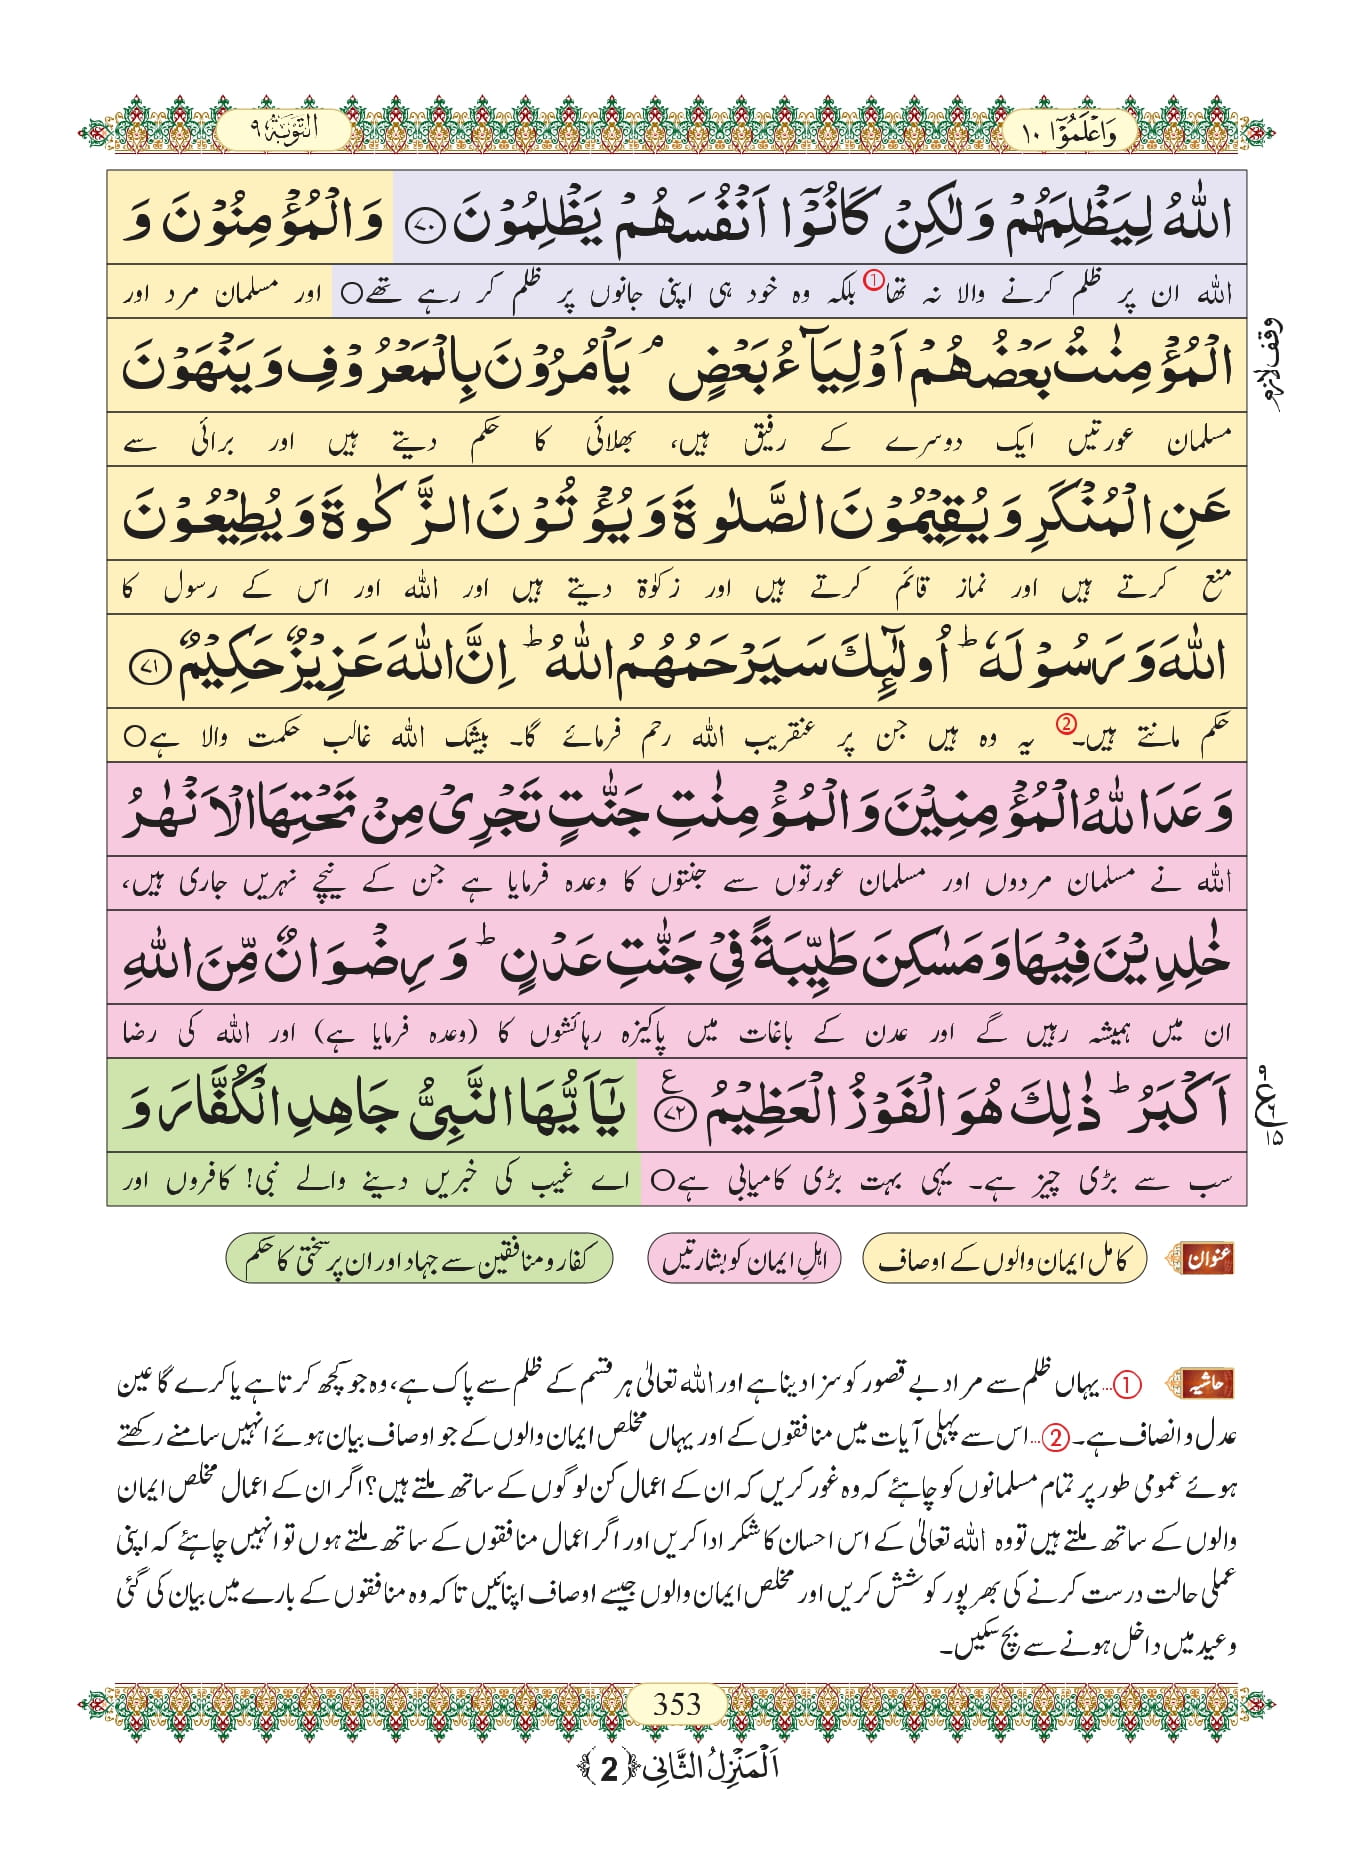 وَاعْلَمُوْۤا ۱۰
التَّوْبَۃ ۹
اللّٰهُ لِیَظْلِمَهُمْ وَ لٰكِنْ كَانُوْۤا اَنْفُسَهُمْ یَظْلِمُوْنَ ﴿۷۰﴾ وَ الْمُؤْمِنُوْنَ وَ
اللہ ان پر ظلم کرنے والا نہ تھا ① بلکہ وہ خود ہی اپنی جانوں پر ظلم کر رہے تھے○ اور مسلمان مرد اور
الْمُؤْمِنٰتُ بَعْضُهُمْ اَوْلِیَآءُ بَعْضٍ ۘ یَاْمُرُوْنَ بِالْمَعْرُوْفِ وَ یَنْهَوْنَ
وقف لازم
مسلمان عورتیں ایک دوسرے کے رفیق ہیں، بھلائی کا حکم دیتے ہیں اور برائی سے
عَنِ الْمُنْكَرِ وَ یُقِیْمُوْنَ الصَّلٰوةَ وَ یُؤْتُوْنَ الزَّكٰوةَ وَ یُطِیْعُوْنَ
منع کرتے ہیں اور نماز قائم کرتے ہیں اور زکوٰۃ دیتے ہیں اور اللہ اور اس کے رسول کا
اللّٰهَ وَ رَسُوْلَهٗ ؕ اُولٰٓىٕكَ سَیَرْحَمُهُمُ اللّٰهُ ؕ اِنَّ اللّٰهَ عَزِیْزٌ حَكِیْمٌ ﴿۷۱﴾
حکم مانتے ہیں۔② یہ وہ ہیں جن پر عنقریب اللہ رحم فرمائے گا۔ بیشک اللہ غالب حکمت والا ہے○
وَعَدَ اللّٰهُ الْمُؤْمِنِیْنَ وَ الْمُؤْمِنٰتِ جَنّٰتٍ تَجْرِیْ مِنْ تَحْتِهَا الْاَنْهٰرُ
اللہ نے مسلمان مردوں اور مسلمان عورتوں سے جنتوں کا وعدہ فرمایا ہے جن کے نیچے نہریں جاری ہیں،
خٰلِدِیْنَ فِیْهَا وَ مَسٰكِنَ طَیِّبَةً فِیْ جَنّٰتِ عَدْنٍ ؕ وَ رِضْوَانٌ مِّنَ اللّٰهِ
ان میں ہمیشہ رہیں گے اور عدن کے باغات میں پاکیزہ رہائشوں کا (وعدہ فرمایا ہے) اور اللہ کی رضا
اَكْبَرُ ؕ ذٰلِكَ هُوَ الْفَوْزُ الْعَظِیْمُ ﴿۷۲﴾ ع یٰۤاَیُّهَا النَّبِیُّ جَاهِدِ الْكُفَّارَ وَ
ع ۹ ۶ ۱۵
سب سے بڑی چیز ہے۔ یہی بہت بڑی کامیابی ہے○ اے غیب کی خبریں دینے والے نبی! کافروں اور
عنوان کامل ایمان والوں کے اوصاف اہلِ ایمان کو بشارتیں کفار و منافقین سے جہاد اور ان پر سختی کا حکم
حاشیہ ①... یہاں ظلم سے مراد بے قصور کو سزا دینا ہے اور اللہ تعالیٰ ہر قسم کے ظلم سے پاک ہے، وہ جو کچھ کرتا ہے یا کرے گا عین
عدل و انصاف ہے۔ ②... اس سے پہلی آیات میں منافقوں کے اور یہاں مخلص ایمان والوں کے جو اوصاف بیان ہوئے انہیں سامنے رکھتے
ہوئے عمومی طور پر تمام مسلمانوں کو چاہئے کہ وہ غور کریں کہ ان کے اعمال کن لوگوں کے ساتھ ملتے ہیں؟ اگر ان کے اعمال مخلص ایمان
والوں کے ساتھ ملتے ہیں تو وہ اللہ تعالیٰ کے اس احسان کا شکر ادا کریں اور اگر اعمال منافقوں کے ساتھ ملتے ہوں تو انہیں چاہئے کہ اپنی
عملی حالت درست کرنے کی بھرپور کوشش کریں اور مخلص ایمان والوں جیسے اوصاف اپنائیں تاکہ وہ منافقوں کے بارے میں بیان کی گئی
وعید میں داخل ہونے سے بچ سکیں۔
353
اَلْمَنْزِلُ الثَّانِی ﴿2﴾